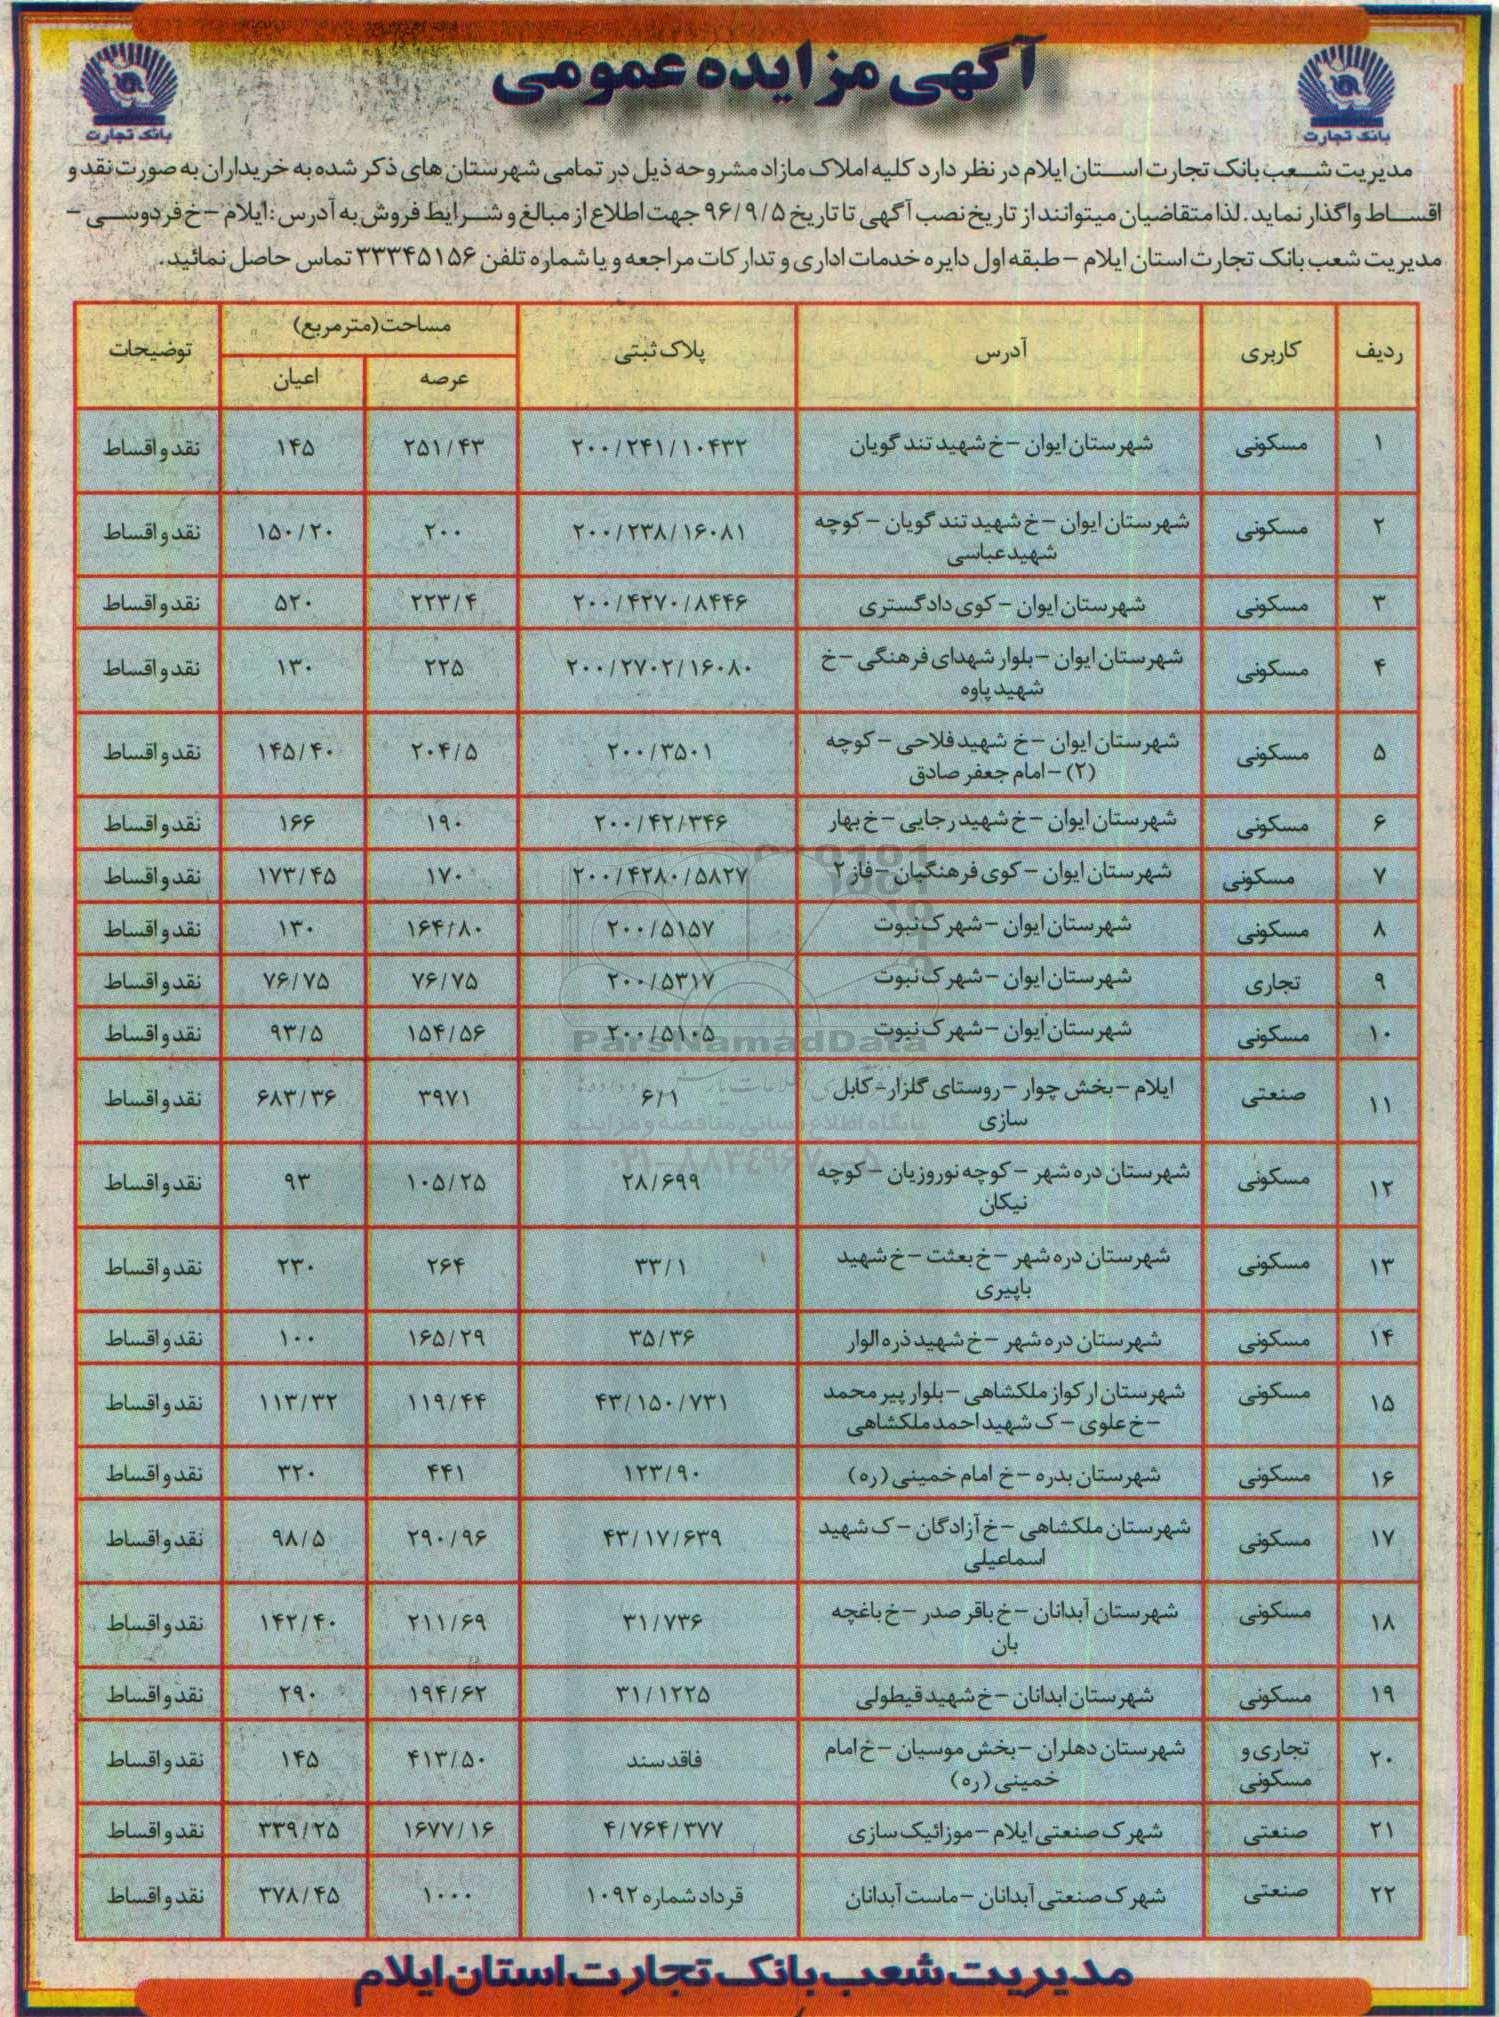 آگهی مزایده عمومی
بانک تجارت
بانک تجارت
مدیریت شعب بانک تجارت استان ایلام در نظر دارد کلیه املاک مازاد مشروحه ذیل در تمامی شهرستان های ذکر شده به خریداران به صورت نقد و
اقساط واگذار نماید. لذا متقاضیان میتوانند از تاریخ نصب آگهی تا تاریخ ۹۶/۹/۵ جهت اطلاع از مبالغ و شرایط فروش به آدرس: ایلام - خ فردوسی -
مدیریت شعب بانک تجارت استان ایلام - طبقه اول دایره خدمات اداری و تدارکات مراجعه و یا شماره تلفن ۳۳۳۴۵۱۵۶ تماس حاصل نمائید.
ردیف کاربری آدرس پلاک ثبتی مساحت (مترمربع) توضیحات
عرصه اعیان
۱ مسکونی شهرستان ایوان - خ شهید تند گویان ۲۰۰/۲۴۱/۱۰۴۳۲ ۲۵۱/۴۳ ۱۴۵ نقد و اقساط
۲ مسکونی شهرستان ایوان - خ شهید تند گویان - کوچه ۲۰۰/۲۳۸/۱۶۰۸۱ ۲۰۰ ۱۵۰/۲۰ نقد و اقساط
شهید عباسی
۳ مسکونی شهرستان ایوان - کوی دادگستری ۲۰۰/۴۲۷۰/۸۴۴۶ ۲۲۳/۴ ۵۲۰ نقد و اقساط
۴ مسکونی شهرستان ایوان - بلوار شهدای فرهنگی - خ ۲۰۰/۲۷۰۲/۱۶۰۸۰ ۲۲۵ ۱۳۰ نقد و اقساط
شهید پاوه
۵ مسکونی شهرستان ایوان - خ شهید فلاحی - کوچه ۲۰۰/۳۵۰۱ ۲۰۴/۵ ۱۴۵/۴۰ نقد و اقساط
(۲) - امام جعفر صادق
۶ مسکونی شهرستان ایوان - خ شهید رجایی - خ بهار ۲۰۰/۴۲/۳۴۶ ۱۹۰ ۱۶۶ نقد و اقساط
۷ مسکونی شهرستان ایوان - کوی فرهنگیان - فاز ۲ ۲۰۰/۴۲۸۰/۵۸۲۷ ۱۷۰ ۱۷۳/۴۵ نقد و اقساط
۸ مسکونی شهرستان ایوان - شهرک نبوت ۲۰۰/۵۱۵۷ ۱۶۴/۸۰ ۱۳۰ نقد و اقساط
۹ تجاری شهرستان ایوان - شهرک نبوت ۲۰۰/۵۳۱۷ ۷۶/۷۵ ۷۶/۷۵ نقد و اقساط
۱۰ مسکونی شهرستان ایوان - شهرک نبوت ۲۰۰/۵۱۰۵ ۱۵۴/۵۶ ۹۳/۵ نقد و اقساط
ParsNamadData
۱۱ صنعتی ایلام - بخش چوار - روستای گلزار - کابل ۶/۱ ۳۹۷۱ ۶۸۳/۳۶ نقد و اقساط
سازی
پایگاه اطلاع رسانی مناقصه و مزایده
۱۲ مسکونی شهرستان دره شهر - کوچه نوروزیان - کوچه ۲۸/۶۹۹ ۱۰۵/۲۵ ۹۳ نقد و اقساط
نیکان
۱۳ مسکونی شهرستان دره شهر - خ بعثت - خ شهید ۳۳/۱ ۲۶۴ ۲۳۰ نقد و اقساط
باپیری
۱۴ مسکونی شهرستان دره شهر - خ شهید ذره الوار ۳۵/۳۶ ۱۶۵/۲۹ ۱۰۰ نقد و اقساط
۱۵ مسکونی شهرستان ارکواز ملکشاهی - بلوار پیر محمد ۴۳/۱۵۰/۷۳۱ ۱۱۹/۴۴ ۱۱۳/۳۲ نقد و اقساط
- خ علوی - ک شهید احمد ملکشاهی
۱۶ مسکونی شهرستان بدره - خ امام خمینی (ره) ۱۲۳/۹۰ ۴۴۱ ۳۲۰ نقد و اقساط
۱۷ مسکونی شهرستان ملکشاهی - خ آزادگان - ک شهید ۴۳/۱۷/۶۳۹ ۲۹۰/۹۶ ۹۸/۵ نقد و اقساط
اسماعیلی
۱۸ مسکونی شهرستان آبدانان - خ باقر صدر - خ باغچه ۳۱/۷۳۶ ۲۱۱/۶۹ ۱۴۲/۴۰ نقد و اقساط
بان
۱۹ مسکونی شهرستان ابدانان - خ شهید قیطولی ۳۱/۱۲۲۵ ۱۹۴/۶۲ ۲۹۰ نقد و اقساط
۲۰ تجاری و شهرستان دهلران - بخش موسیان - خ امام فاقد سند ۴۱۳/۵۰ ۱۴۵ نقد و اقساط
مسکونی خمینی (ره)
۲۱ صنعتی شهرک صنعتی ایلام - موزائیک سازی ۴/۷۶۴/۳۷۷ ۱۶۷۷/۱۶ ۳۳۹/۲۵ نقد و اقساط
۲۲ صنعتی شهرک صنعتی آبدانان - ماست آبدانان قرداد شماره ۱۰۹۲ ۱۰۰۰ ۳۷۸/۴۵ نقد و اقساط
مدیریت شعب بانک تجارت استان ایلام